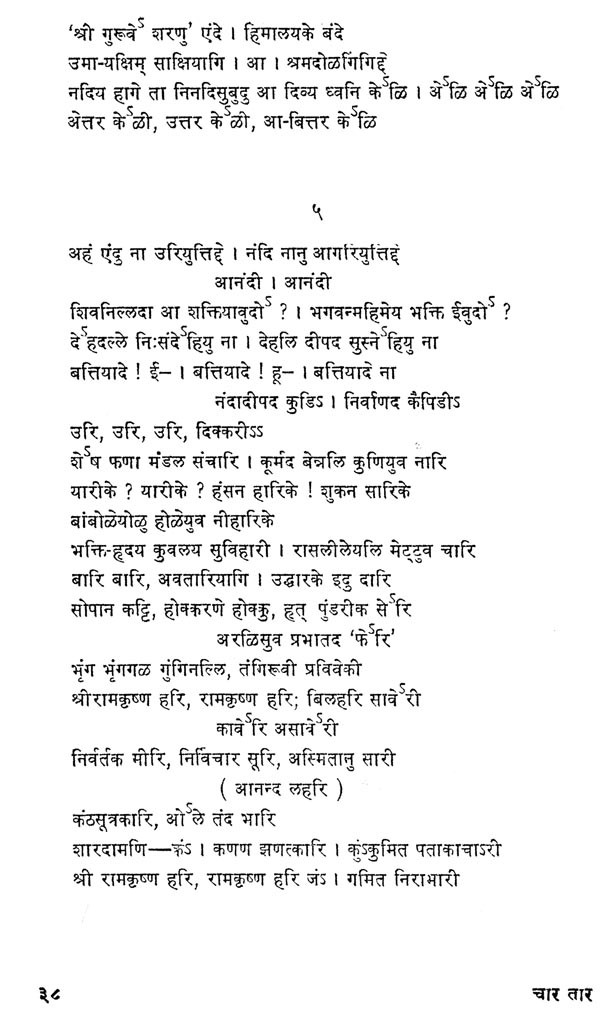 ‘श्री गुरूवेꣽ शरणु’ एंदे । हिमालयके बंदे
उमा-यक्षिम् साक्षियागि । आ । श्रमदोळगिंगिद्दे
नदिय हागे ता निनदिसुबुदु आ दिव्य ध्वनि केꣽळि । अेꣽळि अेꣽळि अेꣽळि
अेत्तर केꣽळी, उत्तर केꣽळी, आ-बित्तर केꣽळि
५
अहं एंदु ना उरियुत्तिद्दे । नंदि नानु आगरियुत्तिद्दे
आनंदी । आनंदी
शिवनिल्लदा आ शक्तियावुदोꣽ ? । भगवन्महिमेय भक्ति ईवुदोꣽ ?
देꣽहदल्ले निःसंदेꣽहियु ना । देहलि दीपद सुस्नेꣽहियु ना
बत्तियादे ! ई– । बत्तियादे ! हू– । बत्तियादे ना
नंदादीपद कुडिऽ । निर्वाणद कैपिडीऽ
उरि, उरि, उरि, दिक्करीऽऽ
शेꣽष फणा मंडल संचारि । कूर्मद बेन्नलि कुणियुव नारि
यारीके ? यारीके ? हंसन हारिके ! शुकन सारिके
बांबोळेयोळु होळेयुव नीहारिके
भक्ति-हृदय कुवलय सुविहारी । रासलीलेयलि मेट्टुव चारि
बारि बारि, अवतारियागि । उद्धारके इदु दारि
सोपान कट्टि, होक्करणे होक्कु, हृत् पुंडरीक सेꣽरि
अरळिसुव प्रभातद ‘फेꣽरि’
भृंग भृंगगळ गुंगिनल्लि, तंगिरूवी प्रविवेकी
श्रीरामकृष्ण हरि, रामकृष्ण हरि; बिलहरि सावेꣽरी
कावेꣽरि असावेꣽरी
निर्वर्तक मीरि, निर्विचार सूरि, अस्मितानु सारी
( आनन्द लहरि )
कंठसूत्रकारि, ओꣽले तंद भारि
शारदामणि—कंऽ । कणण झणत्कारि । कुंऽकुमित पताकाचाऽरी
श्री रामकृष्ण हरि, रामकृष्ण हरि जंऽ । गमित निराभारी
३८ चार तार